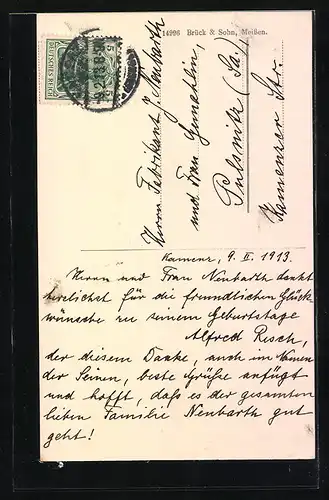 14996 Brück & Sohn, Meißen.
DEUTSCHES REICH
5 5
Herrn Fabrikant J. Neubarth
und Frau Gemahlin,
Pulsnitz (Sa.)
Kamenzer Str.
Kamenz, 9. II. 1913.
Herrn und Frau Neubarth dankt
herzlichst für die freundlichen Glück-
wünsche zu seinem Geburtstage
Alfred Resch,
der diesem Danke, auch im Namen
der Seinen, beste Grüße anfügt
und hofft, daß es der gesamten
lieben Familie Neubarth gut
geht!